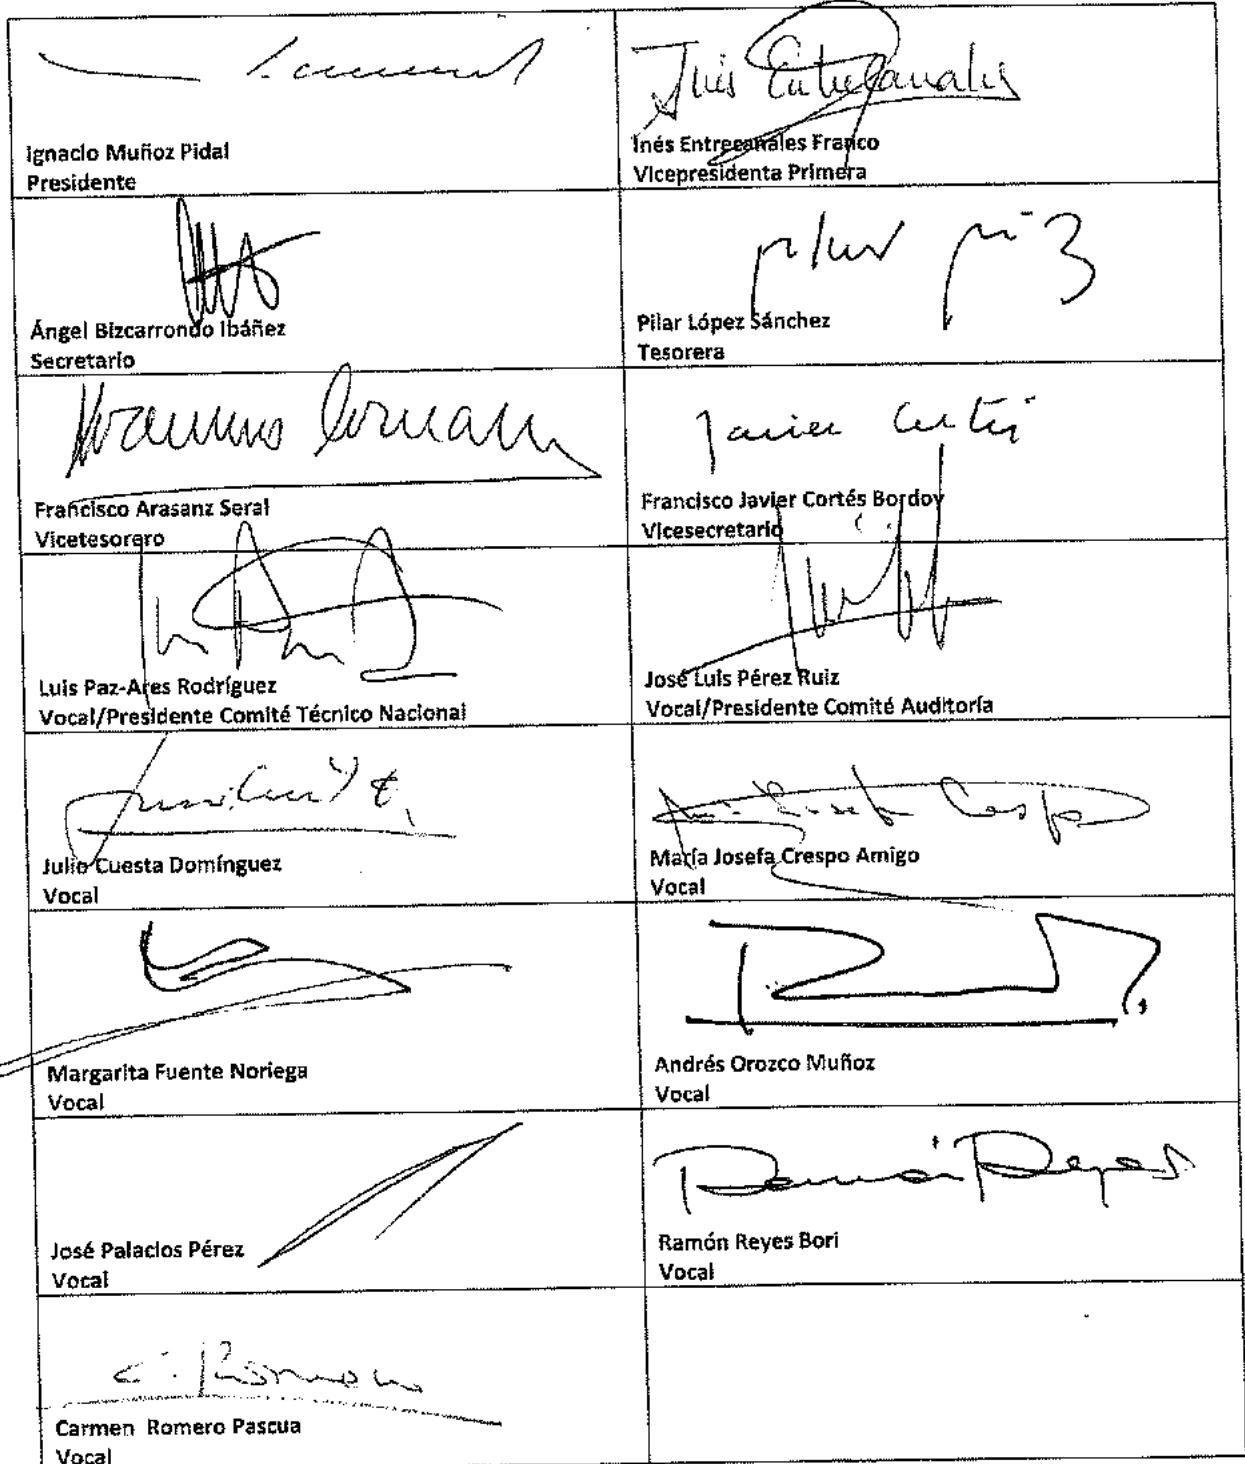 Inés Entrecanales
Ignacio Muñoz Pidal
Presidente
Inés Entrecanales Franco
Vicepresidenta Primera
Ángel Bizcarrondo Ibáñez
Secretario
Pilar López Sánchez
Tesorera
Javier Cortés
Francisco Arasanz Seral
Vicetesorero
Francisco Javier Cortés Bordoy
Vicesecretario
Luis Paz-Ares Rodríguez
Vocal/Presidente Comité Técnico Nacional
José Luis Pérez Ruiz
Vocal/Presidente Comité Auditoría
Julio Cuesta Domínguez
Vocal
María Josefa Crespo Amigo
Vocal
Margarita Fuente Noriega
Vocal
Andrés Orozco Muñoz
Vocal
José Palacios Pérez
Vocal
Ramón Reyes
Ramón Reyes Bori
Vocal
C. Romero
Carmen Romero Pascua
Vocal